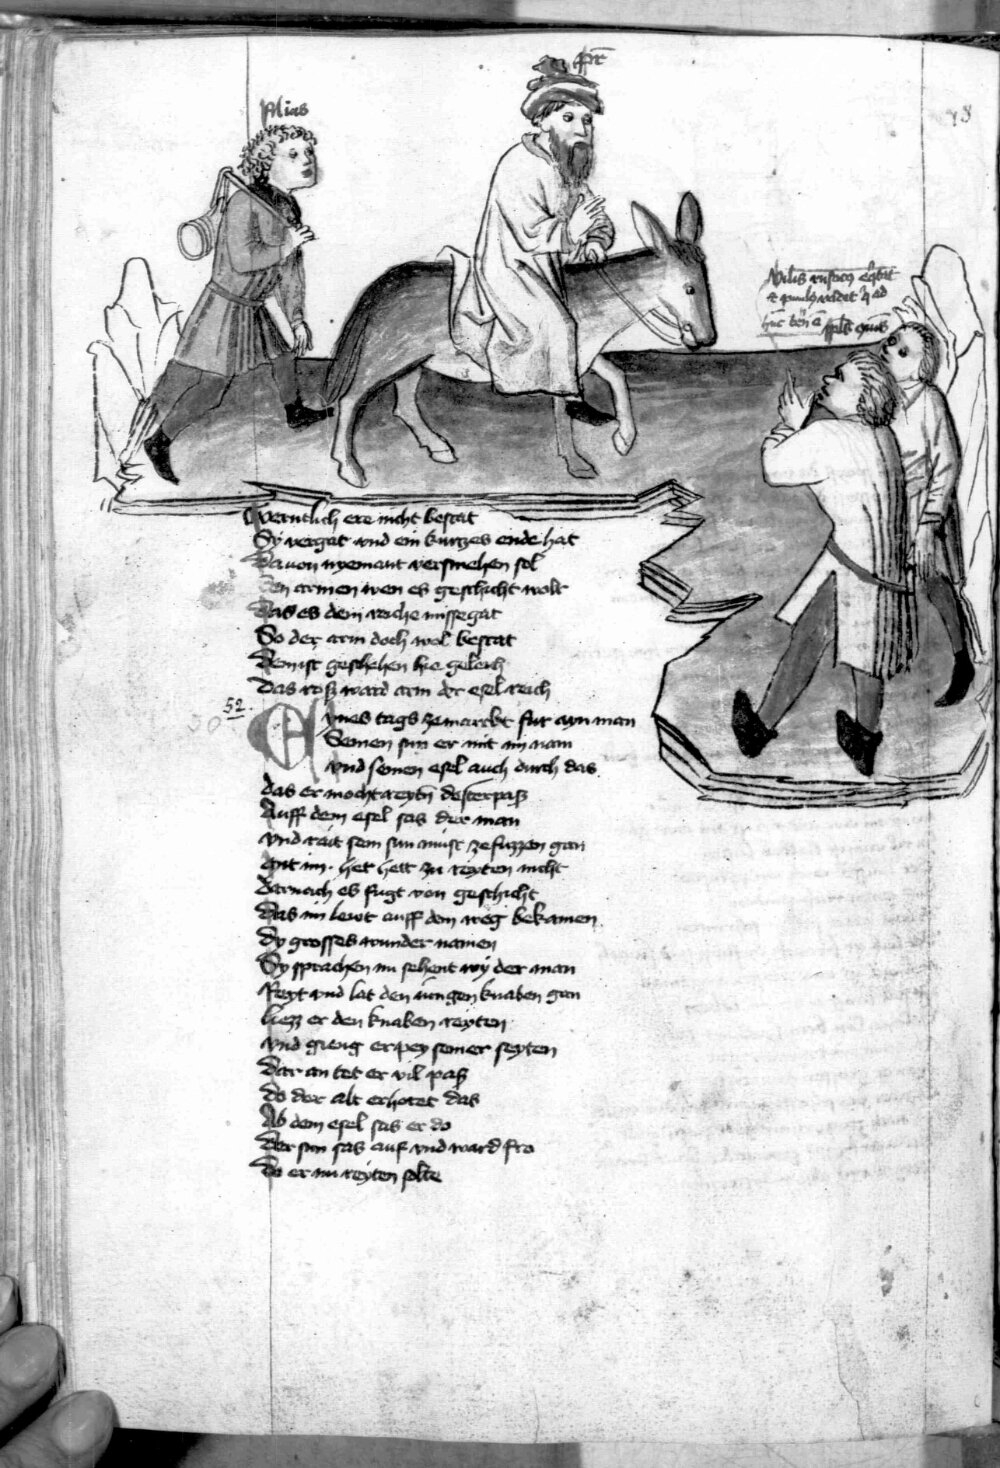 pr̄
filius
78
Vilis rusticus equitat
et puulus vadit
Werntlich ere nicht bestat
Sy vergat vnd ein kurczes ende hat
Da von nyemant versmehen sol
Den armen wen es geschicht wolt
Das es dem reiche missegat
So der arm doch wol bestat
Dem ist geschehen hie geleich
Das ross ward arm der esel reich
52.
Eynes tags ze marckt fur ayn man
Seinen sun er mit im nam
vnd seinen esel auch durch das
das er mocht reytn dester pass
Auff dem esel sas der man
vnd rait sein sun must ze fuzzen gan
Mit im. her hett zu reyten nicht
Darnach es fugt von geschicht
Das im lewt auff dem weg bekamen
Dy grosses wunder namen
Sy sprachen nu sehent wy der man
Reyt vnd lat den iungen knaben gan
liezz er den knaben reyten
vnd gieng er pey seiner seyten
Dar an tet er vil pass
do der alt erhoret das
Ab dem esel sas er do
Der sun sas auf vnd ward fro
Do er nu reyten solte